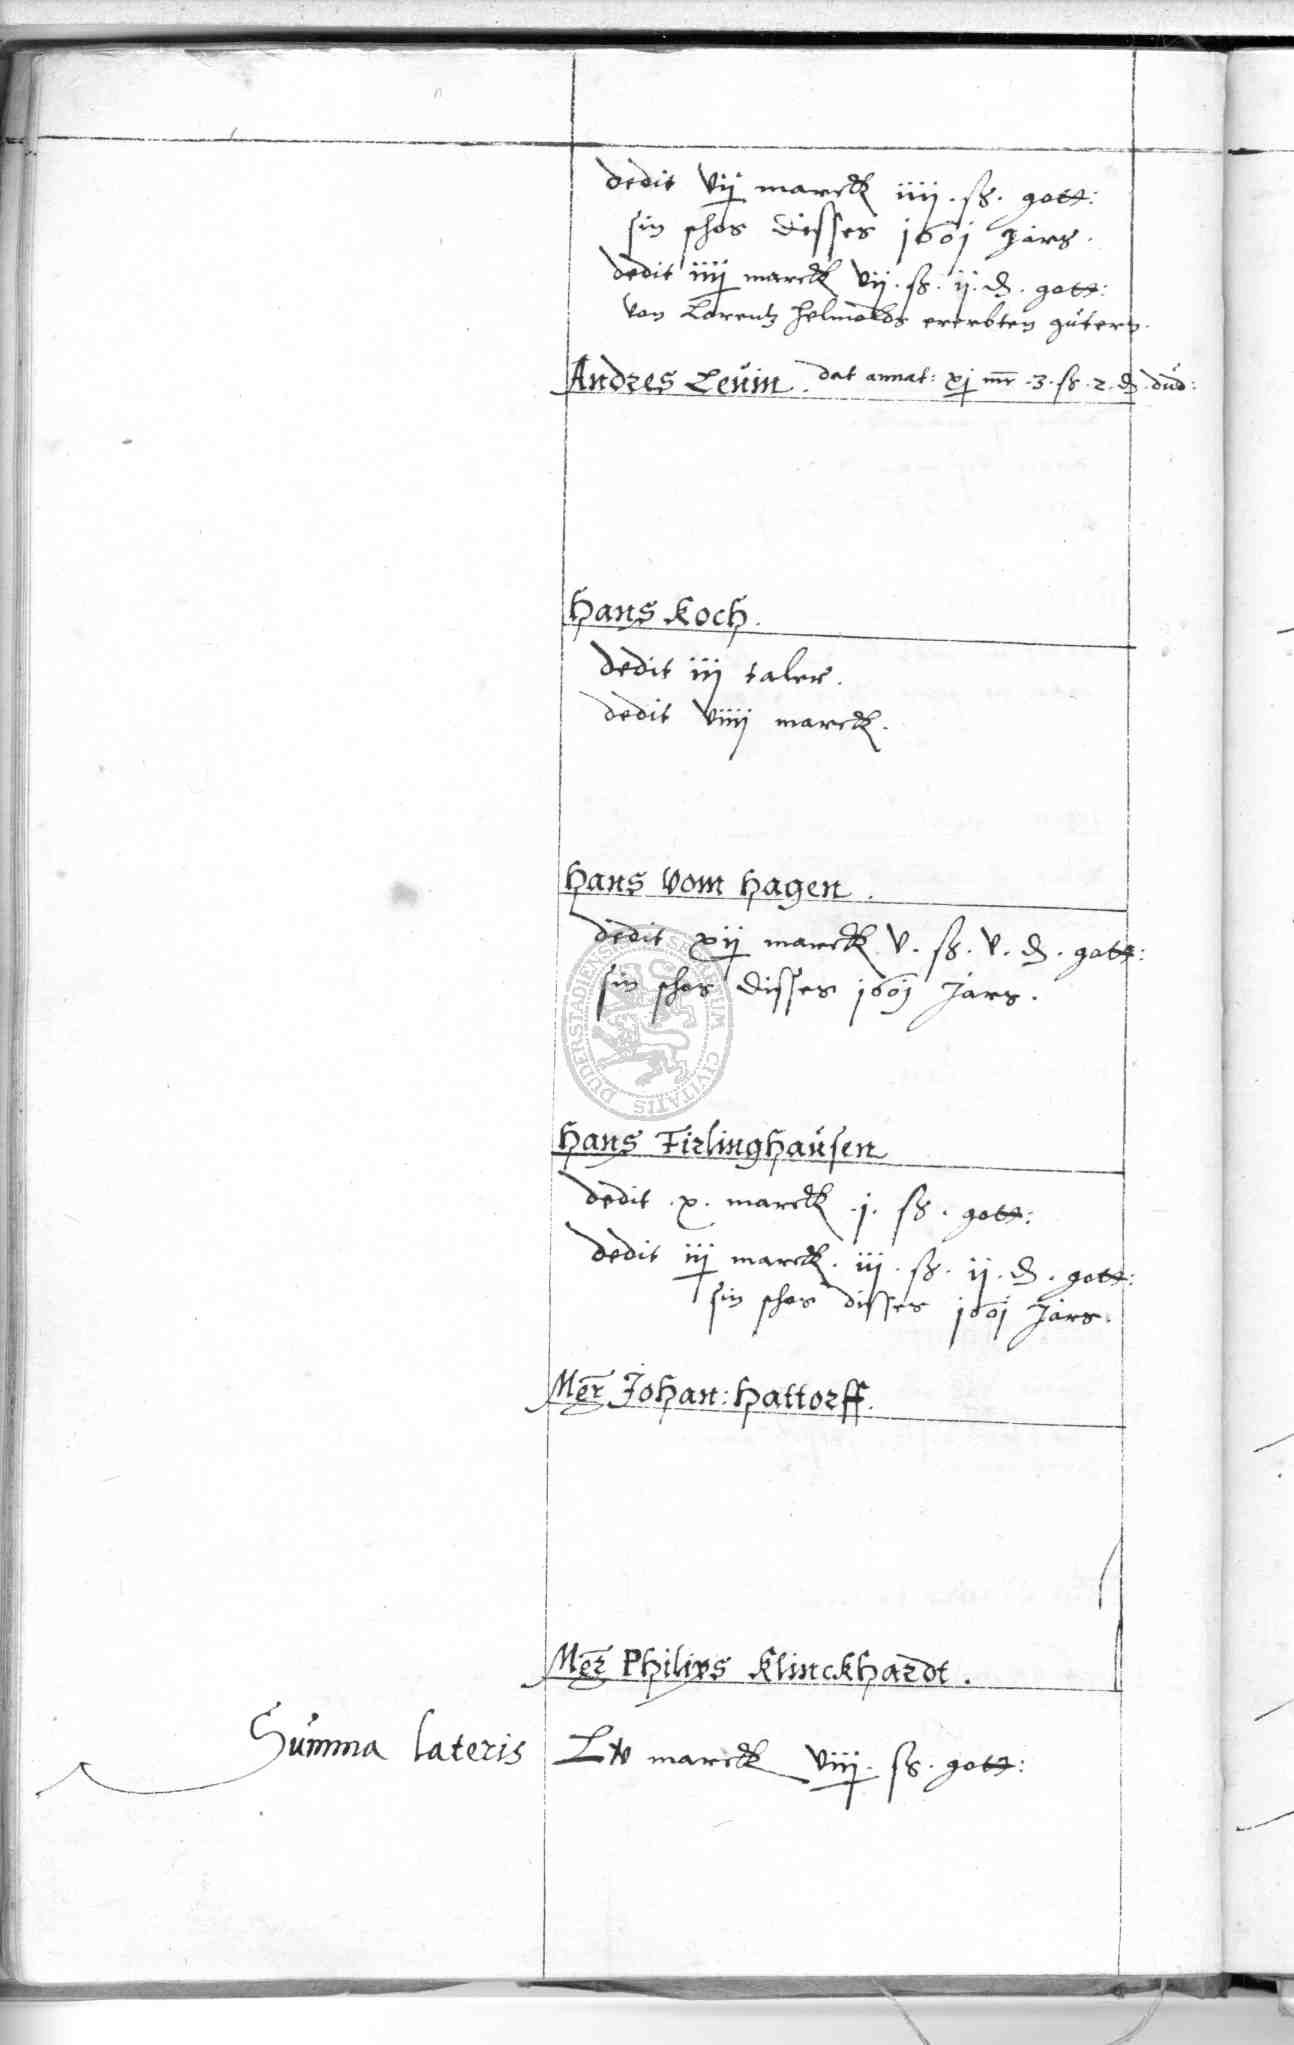 dedit vij marck iiij. ß. gott:
sin schos disses 1601 Jars.
dedit iiij marck vij. ß. ij. ₰. gott:
von Lorentz Helmolds ererbten gütern.
Andres Levin. dat annat: xj mr. 3. ß. 2. ₰. dud:
Hans Koch.
dedit iij taler.
dedit viiij marck.
Hans vom Hagen.
dedit xij marck v. ß. v. ₰. gott:
sin schos disses 1601 Jars.
SECRETUM CIVITATIS DUDERSTADIENSIS
Hans Firlinghausen
dedit. x. marck. j. ß. gott:
dedit iij marck. iij. ß. ij. ₰. gott:
sin schos disses 1601 Jars.
Mer Johan: Hattorff.
Mer Philips Klinckhardt.
Summa lateris Lv marck viij. ß. gott: